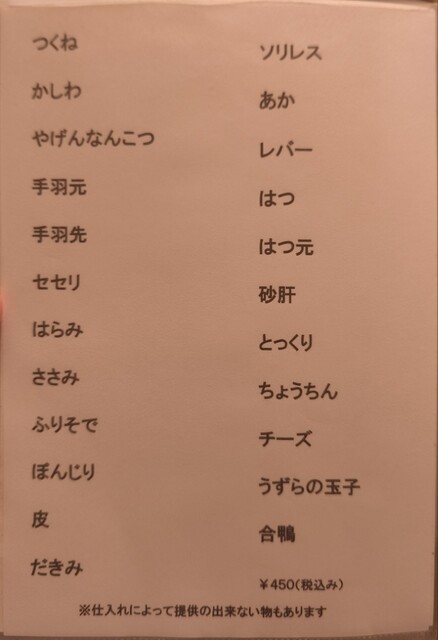 つくね
かしわ
やげんなんこつ
手羽元
手羽先
セセリ
はらみ
ささみ
ふりそで
ぼんじり
皮
だきみ
ソリレス
あか
レバー
はつ
はつ元
砂肝
とっくり
ちょうちん
チーズ
うずらの玉子
合鴨
￥450(税込み)
※仕入れによって提供の出来ない物もあります